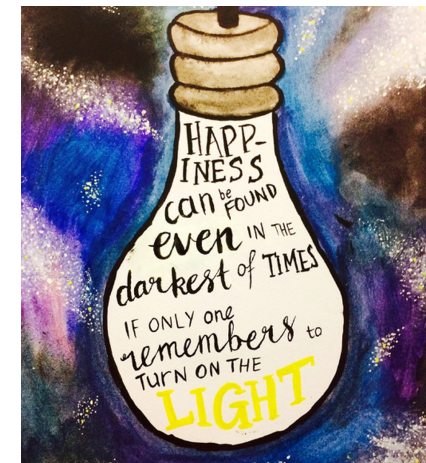 HAPP-
INESS
can be FOUND
even IN THE
darkest of TIMES
IF ONLY one
remembers to
TURN ON THE
LIGHT